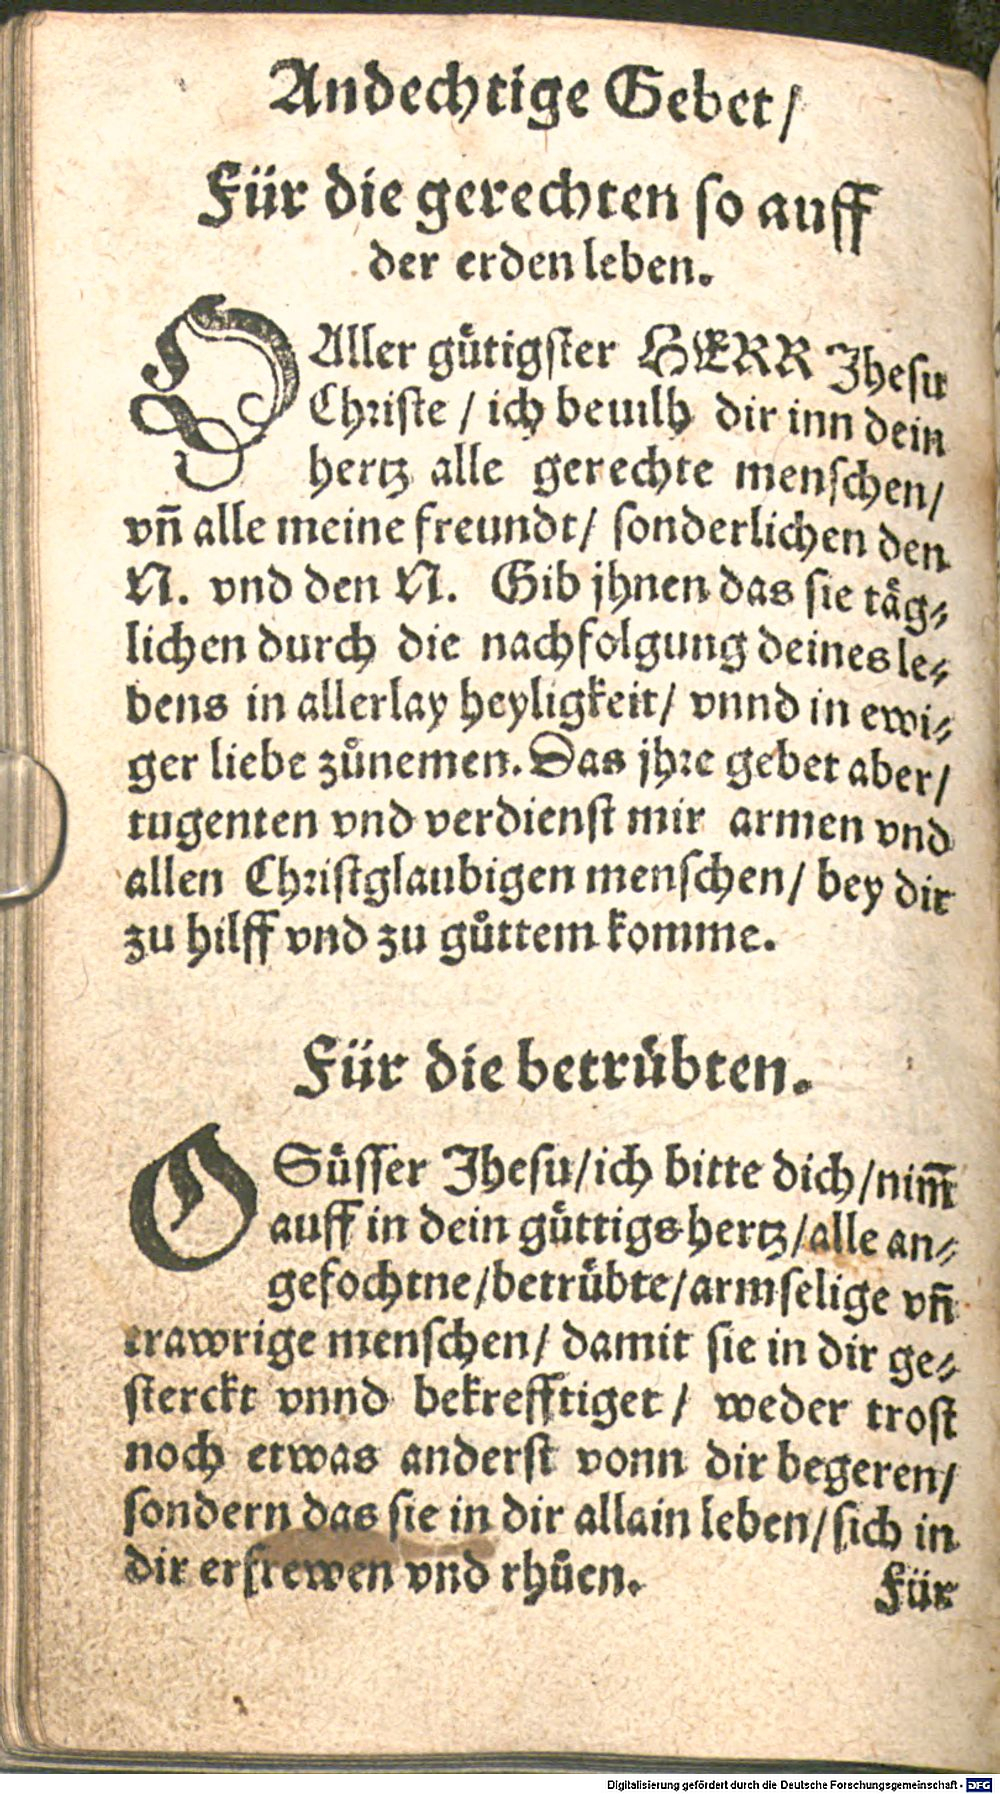 Andechtige Gebet/
Für die gerechten so auff
der erden leben.
O Aller gůtigster HERR Jhesu
Christe / ich beuilh dir inn dein
hertz alle gerechte menschen/
vñ alle meine freundt/ sonderlichen den
N. vnd den N. Gib jhnen das sie täg⸗
lichen durch die nachfolgung deines le⸗
bens in allerlay heyligkeit/ vnnd in ewi⸗
ger liebe zůnemen. Das jhre gebet aber/
tugenten vnd verdienst mir armen vnd
allen Christglaubigen menschen/ bey dir
zu hilff vnd zu gůttem komme.
Für die betrübten.
O Sůsser Jhesu/ich bitte dich/nim̅
auff in dein gůttigs hertz/alle an⸗
gefochtne/betrübte/armselige vñ
trawrige menschen/ damit sie in dir ge⸗
sterckt vnnd bekrefftiget / weder trost
noch etwas anderst vonn dir begeren/
sondern das sie in dir allain leben/sich in
dir erfrewen vnd rhůen.
Für
Digitalisierung gefördert durch die Deutsche Forschungsgemeinschaft - DFG